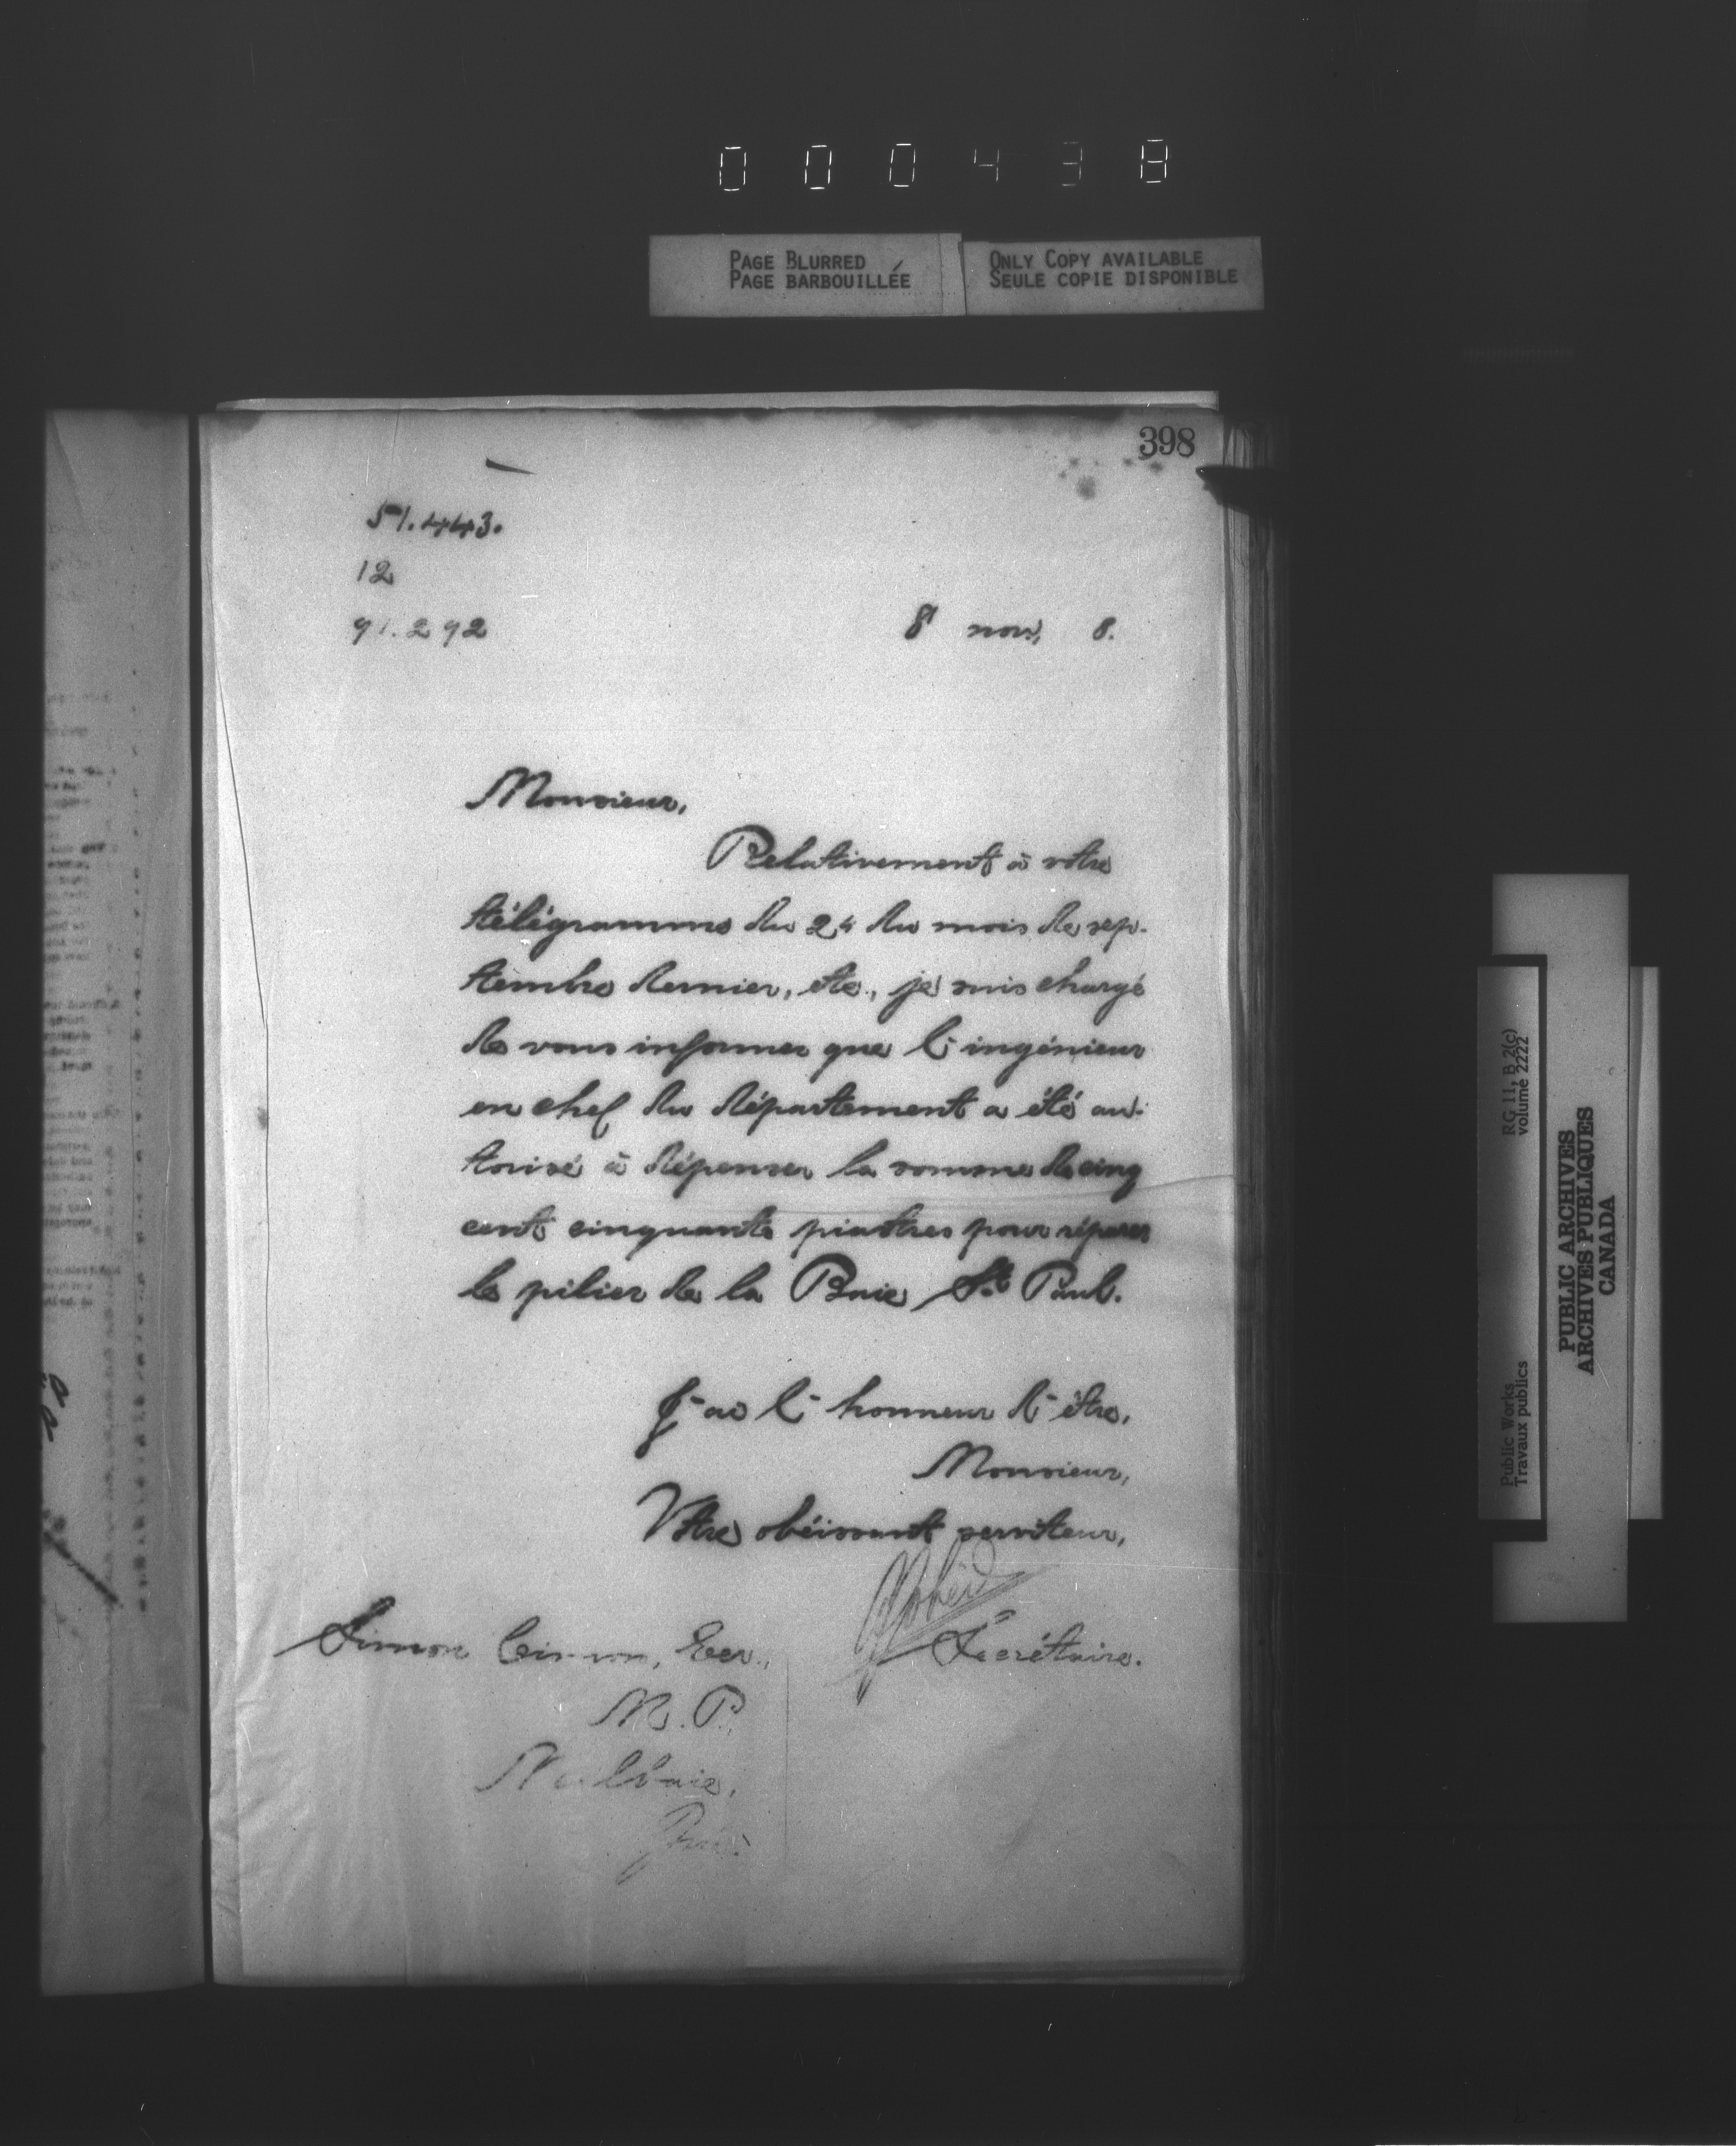 000438
PAGE BLURRED
PAGE BARBOUILLÉE
ONLY COPY AVAILABLE
SEULE COPIE DISPONIBLE
398
51.443.
12
91.292
8 nov. 8.
Monsieur,
Relativement à votre
télégramme du 24 du mois de sep-
tembre dernier, etc., je suis chargé
de vous informer que l'ingénieur
en chef du département a été au-
torisé à dépenser la somme de cinq
cent cinquante piastres pour réparer
le pilier de la Baie St. Paul.
J'ai l'honneur d'être,
Monsieur,
Votre obéissant serviteur,
Secrétaire.
Simon Cimon, Ecr.,
M.P.
Malbaie,
RG 11, B 2(c)
volume 2222
Public Works
Travaux publics
PUBLIC ARCHIVES
ARCHIVES PUBLIQUES
CANADA